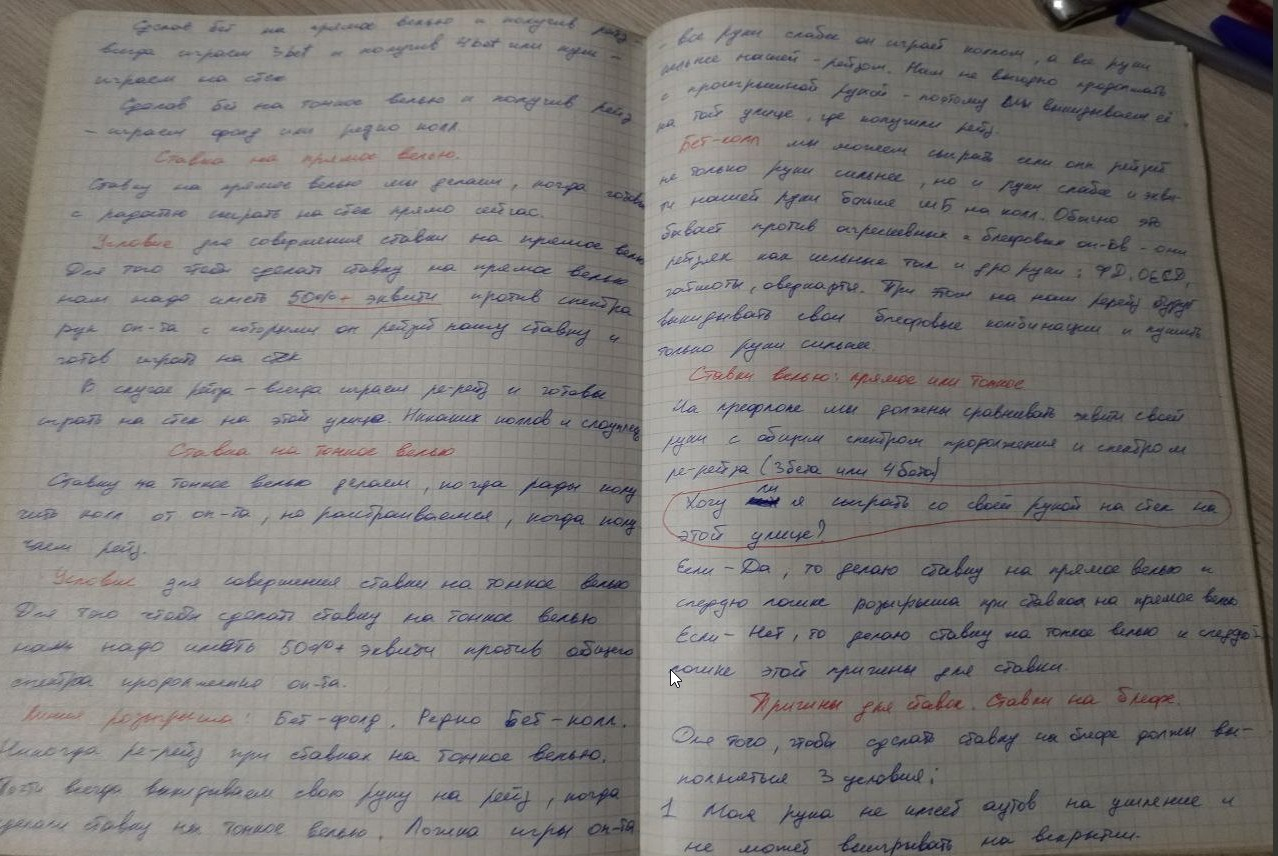 Сделав бет на прямое велью и получив рейз -
всегда играем 3bet и получив 4bet или пуш -
играем на стек
Сделав бет на тонкое велью и получив рейз
- играем фолд или редко колл
Ставка на прямое велью.
Ставку на прямое велью мы делаем, когда готовы
с радостью сыграть на стек прямо сейчас.
Условие для совершения ставки на прямое велью
Для того чтобы сделать ставку на прямое велью
нам надо иметь 50%+ эквити против спектра
рук оп-та с которыми он рейзит нашу ставку и
готов играть на стек
В случае рейза - всегда играем ре-рейз и готовы
играть на стек на этой улице. Никаких коллов и слоуплеев
Ставка на тонкое велью
Ставку на тонкое велью делаем, когда рады полу
чить колл от оп-та, но расстраиваемся, когда полу
чаем рейз.
Условие для совершения ставки на тонкое велью
Для того чтобы сделать ставку на тонкое велью
нам надо иметь 50%+ эквити против общего
спектра продолжения оп-та.
Линия розыгрыша: Бет-фолд. Редко Бет-колл.
Никогда ре-рейз при ставках на тонкое велью.
Почти всегда выкидываем свою руку на рейз, когда
делаем ставку на тонкое велью. Логика игры оп-та
- все руки слабее он играет коллом, а все руки
сильнее нашей - рейзом. Нам не выгодно продолжать
с проигрышной рукой - поэтому мы выкидываем её
на той улице, где получили рейз.
Бет-колл мы можем сыграть если опп рейзит
не только руки сильнее, но и руки слабее и экви-
ти нашей руки больше ШБ на колл. Обычно это
бывает против агрессивных и блефовых оп-ов - они
рейзят как сильные так и др руки: ФД, OESD,
гатшоты, оверкарты. При этом на наш ререйз будут
выкидывать свои блефовые комбинации и пушить
только руки сильнее.
Ставки велью: прямое или тонкое
На префлопе мы должны сравнивать эквити своей
руки с общим спектром продолжения и спектром
ре-рейза (3бета или 4бета)
Хочу ли я сыграть со своей рукой на стек на
этой улице?
Если - Да, то делаю ставку на прямое велью и
следую логике розыгрыша при ставках на прямое велью
Если - Нет, то делаю ставку на тонкое велью и следую
логике этой причины для ставки.
Причины для ставок. Ставки на блеф.
Для того, чтобы сделать ставку на блеф должны вы-
полняться 3 условия:
1 Моя рука не имеет аутов на усиление и
не может выигрывать на вскрытии.